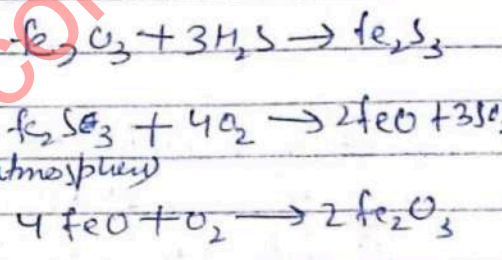 Fe2O3 + 3H2S → Fe2S3
Fe2S3 + 4O2 → 2FeO + 3SO
atmosphere
4 FeO + O2 → 2 Fe2O3